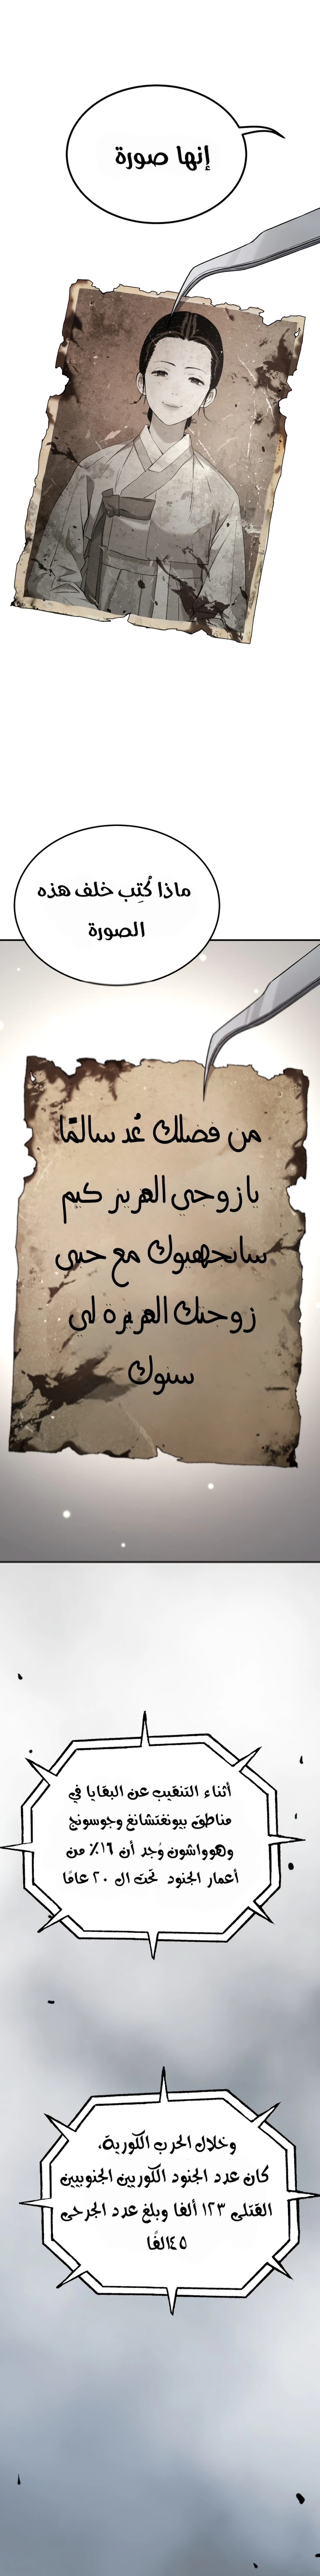 إنها صورة
ماذا كُتِب خلف هذه
الصورة
من فضلك عُد سالمًا
يا زوجي العزيز كيم
سانجهيوك مع حبي
زوجتك العزيزة لي
سنوك
أثناء التنقيب عن البقايا في
مناطق بيونغتشانغ وجوسونج
وهوواشون وُجد أن ١٦٪ من
أعمار الجنود تحت ال ٢٠ عامًا
وخلال الحرب الكورية،
كان عدد الجنود الكوريين الجنوبيين
القتلى ١٣٣ ألفا وبلغ عدد الجرحى
٤٥الفًا